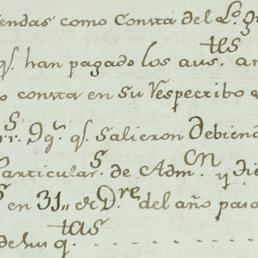 iendas como Consta del L.º
qs. han pagado los aus.tes an
o consta en su Respectibo
rr.s Dq.n qs. salieron Debien
articular.s de Adm.cn y die
s en 31,, de D.re del año pasa
de hus q.tas